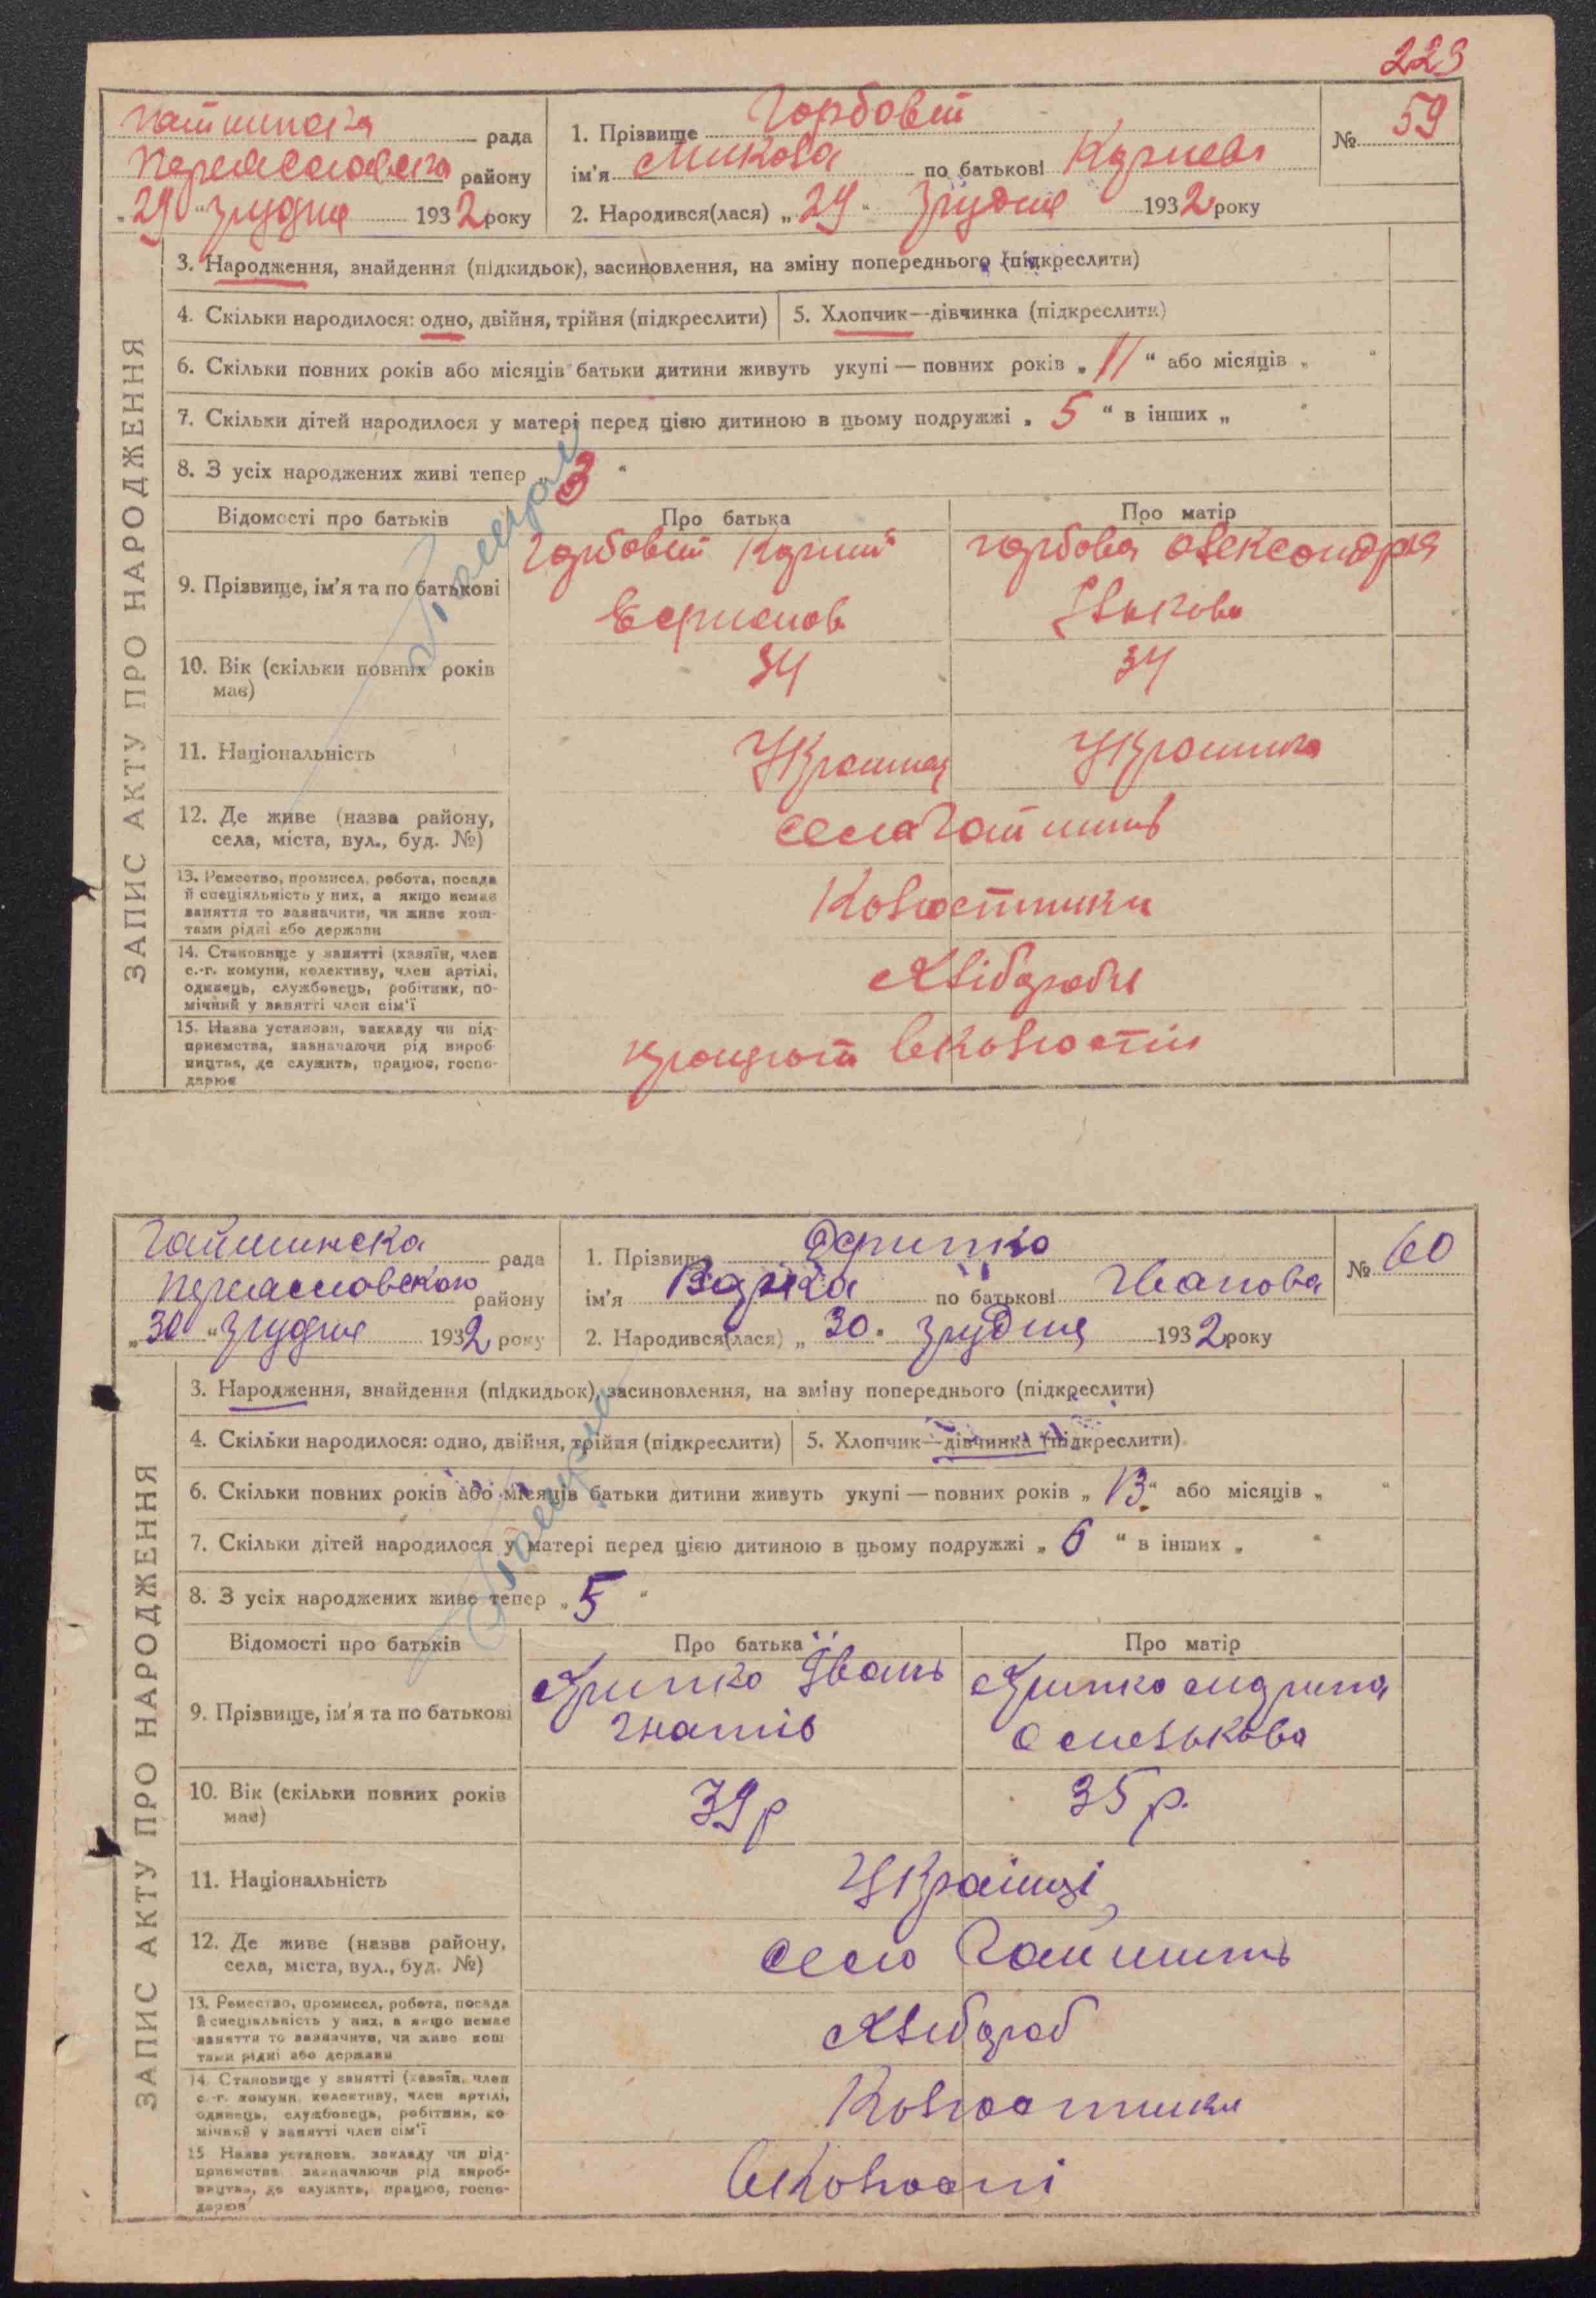 223
Гайшинська рада
Переяславського району
„29“ грудня 1932 року
1. Прізвище Горбовий
ім'я Микола по батькові Корнієв
2. Народився(лася) „29“ грудня 1932 року
№ 59
ЗАПИС АКТУ ПРО НАРОДЖЕННЯ
3. Народження, знайдення (підкидьок), засиновлення, на зміну попереднього (підкреслити)
4. Скільки народилося: одно, двійня, трійня (підкреслити)
5. Хлопчик—дівчинка (підкреслити)
6. Скільки повних років або місяців батьки дитини живуть укупі — повних років „11“ або місяців „ “
7. Скільки дітей народилося у матері перед цією дитиною в цьому подружжі „5“ в інших „ “
8. З усіх народжених живі тепер „3“
Відомості про батьків Про батька Про матір
9. Прізвище, ім'я та по батькові
Горбовий Корній
горбова олександра
10. Вік (скільки повних років має)
34 34
11. Національність
Украінец Украинка
12. Де живе (назва району, села, міста, вул., буд. №)
село Гайшинь
13. Ремество, промисел, робота, посада й спеціяльність у них, а якщо немає заняття то зазначити, чи живе коштами рідні або держави
Колгоспники
14. Становище у занятті (хазяїн, член с.-г. комуни, колективу, член артілі, одинець, службовець, робітник, помічний у занятті член сім'ї
Хліборобы
15. Назва установи, закладу чи підприємства, зазначаючи рід виробництва, де служить, працює, господарює
працюють вколгоспі
Гайшинска рада
Переасловского району
„30“ грудня 1932 року
1. Прізвище
ім'я по батькові Іванова
2. Народився(лася) „30“ грудня 1932 року
№ 60
ЗАПИС АКТУ ПРО НАРОДЖЕННЯ
3. Народження, знайдення (підкидьок), засиновлення, на зміну попереднього (підкреслити)
4. Скільки народилося: одно, двійня, трійня (підкреслити)
5. Хлопчик—дівчинка (підкреслити)
6. Скільки повних років або місяців батьки дитини живуть укупі — повних років „13“ або місяців „ “
7. Скільки дітей народилося у матері перед цією дитиною в цьому подружжі „6“ в інших „ “
8. З усіх народжених живе тепер „5“
Відомості про батьків Про батька Про матір
9. Прізвище, ім'я та по батькові
Івань
Гнатів
Омелькова
10. Вік (скільки повних років має)
39 р 35 р.
11. Національність
Українці
12. Де живе (назва району, села, міста, вул., буд. №)
село Гайшинь
13. Ремество, промисел, робота, посада й спеціяльність у них, а якщо немає заняття то зазначити, чи живе коштами рідні або держави
Хлибороб
14. Становище у занятті (хазяїн, член с.-г. комуни, колективу, член артілі, одинець, службовець, робітник, помічний у занятті член сім'ї
Колгоспники
15 Назва установи, закладу чи підприємства зазначаючи рід виробництва, де служить, працює, господарює
вколгоспі